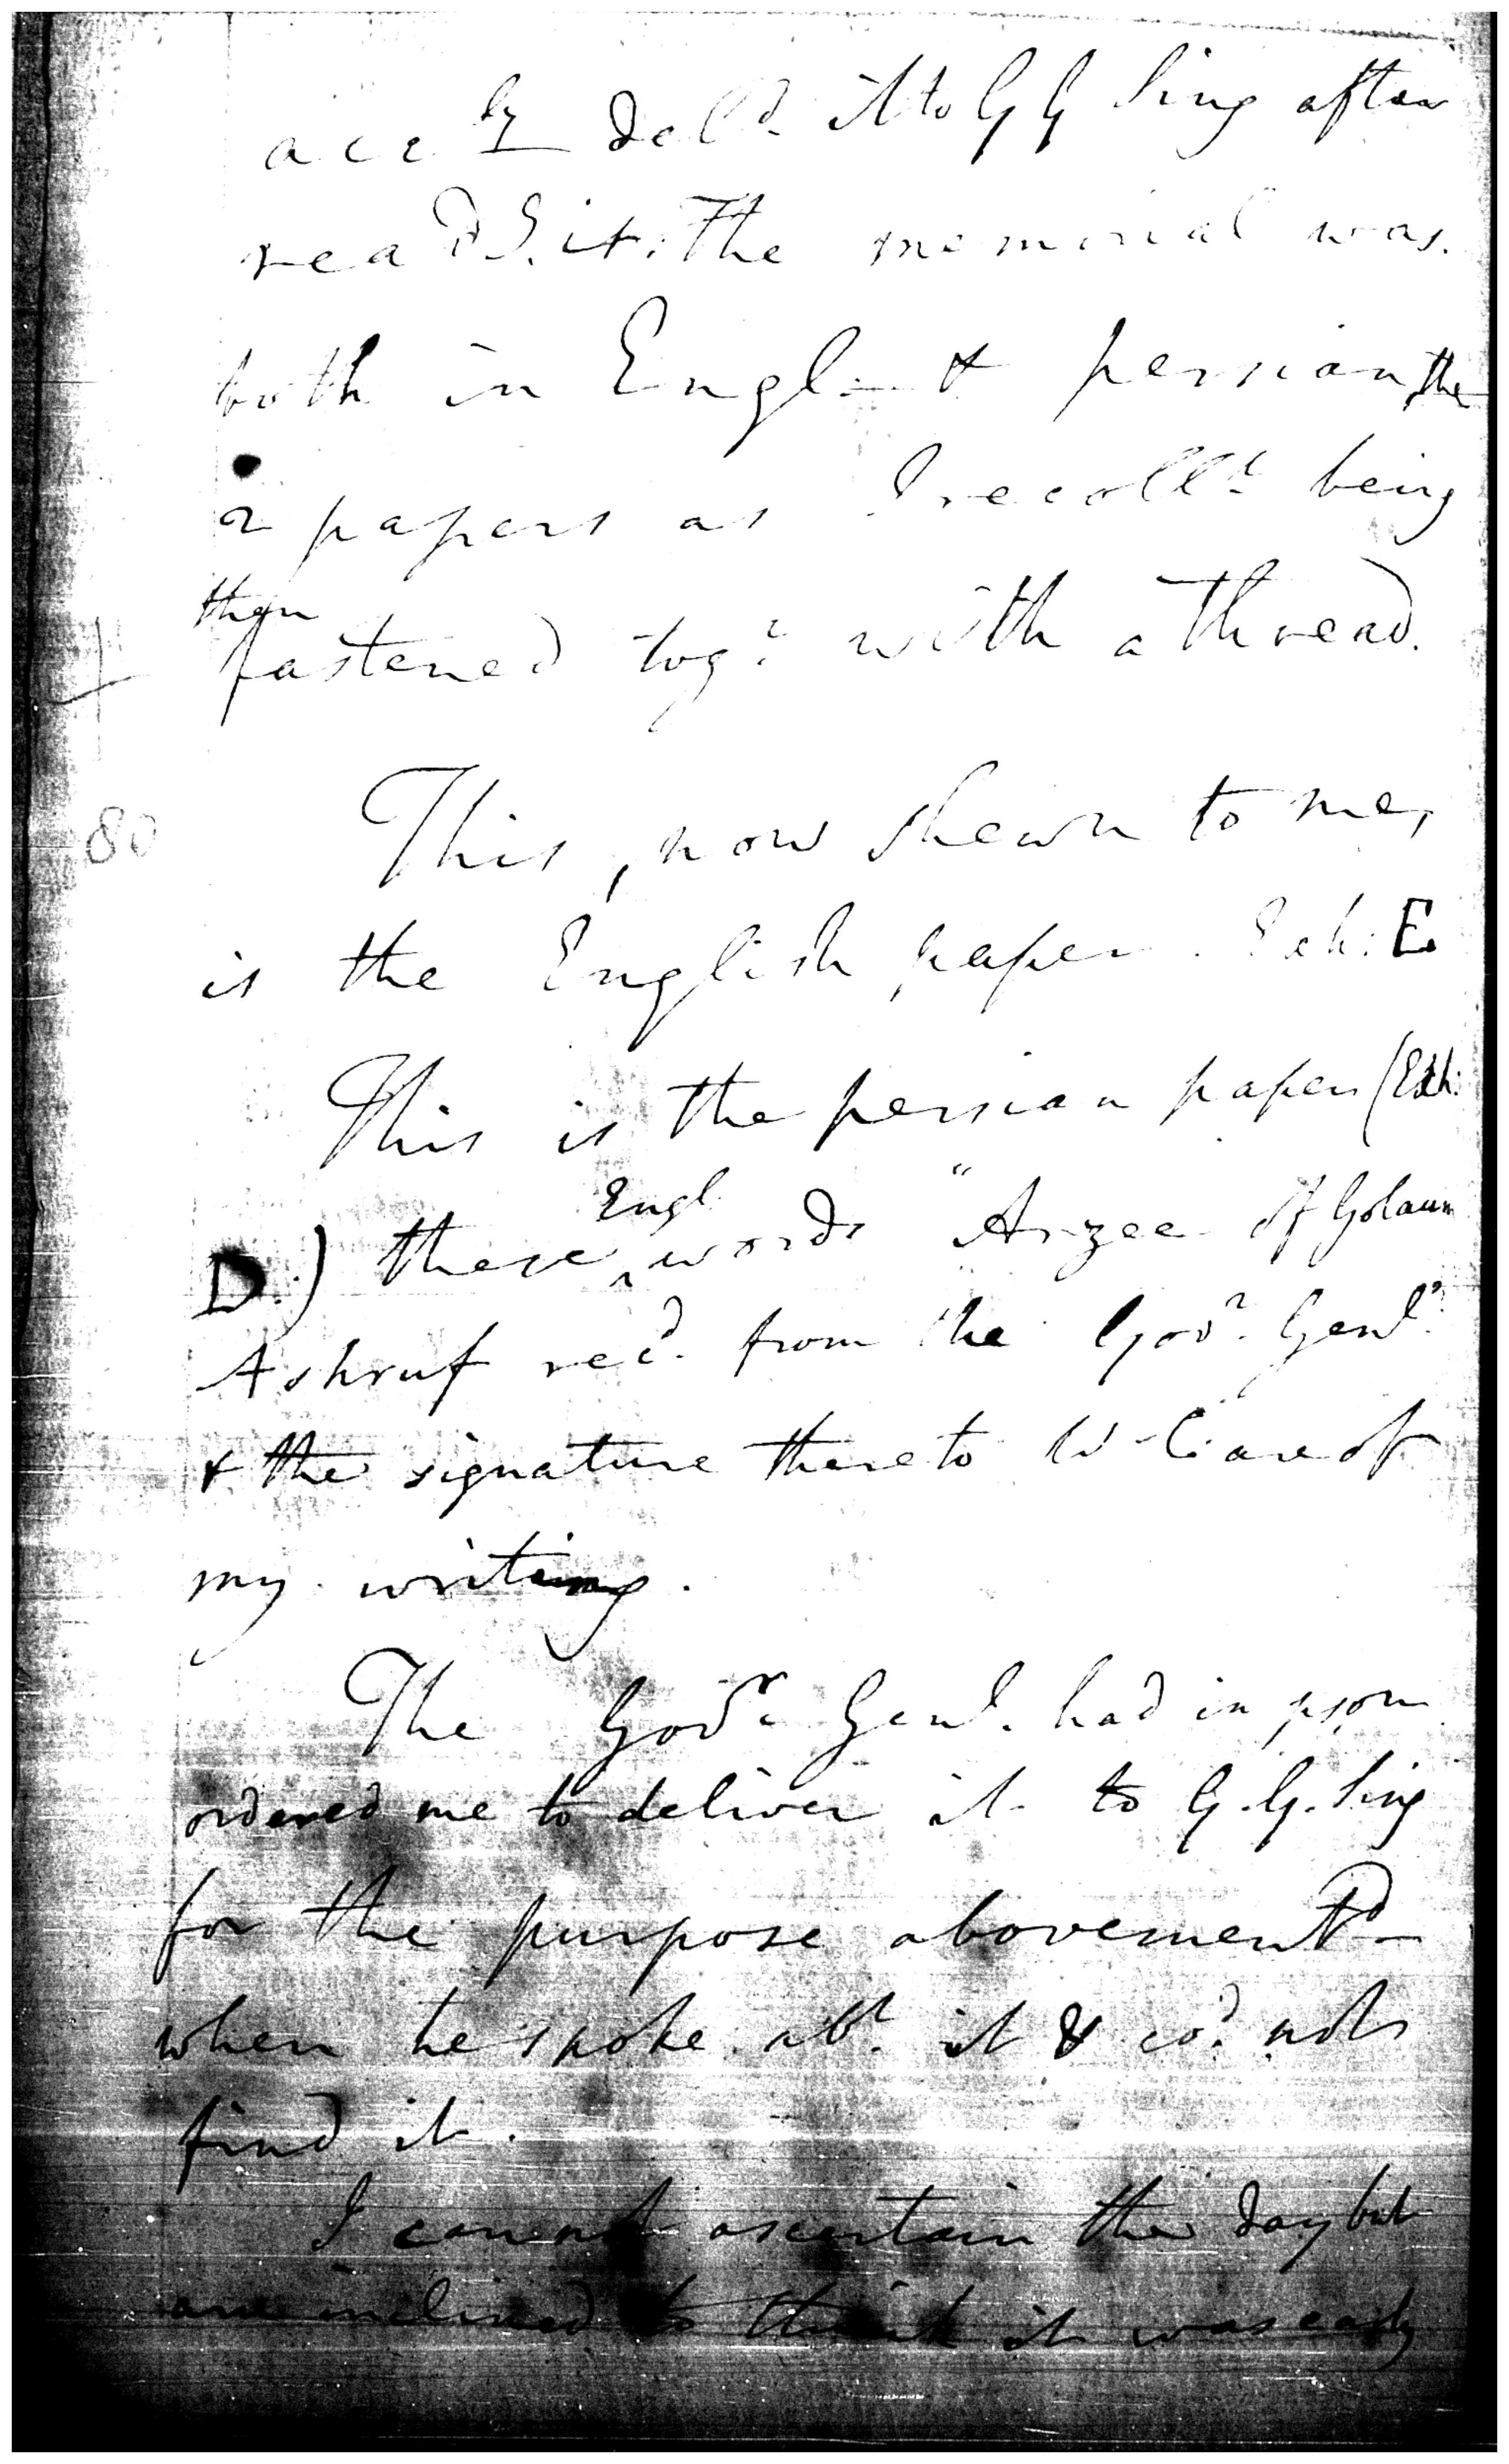 acc.ly deld. it to G G Sing after
readg. it. The memorial was
both in Engl. & persian, the
2 papers as I recollt. being
then
fastened togr. with a thread.
This, now shewn to me,
80
is the English paper. Exh: E.
This is the persian paper (Exh:
D.) these Engl words "Arzee of Golaum
Ashruf recd. from the Govr. Genl."
& the signature thereto W. C are of
my writing.
The Govr. Genl. had in pson
ordered me to deliver it to G. G. Sing
for the purpose abovementd
when he spoke abt. it & cod. not
find it.
I cannot ascertain the day but
am inclined to think it was early